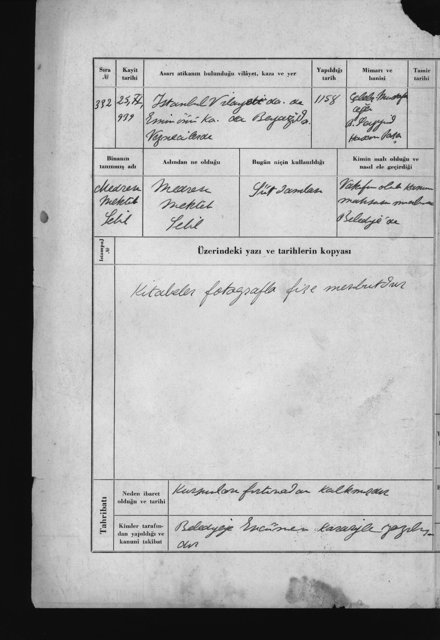 Sıra №
Kayit tarihi
Asarı atikanın bulunduğu vilâyet, kaza ve yer
Yapıldığı tarih
Mimarı ve banisi
Tamir tarihi
332
999
İstanbul Vilayetinda
Emin önü ka. da Beyazıda
Veznecilerde
1158
Seyyid
Hasan Paşa
Binanın tanınmış adı
Aslından ne olduğu
Bugün niçin kullanıldığı
Kimin malı olduğu ve nasıl ele geçirdiği
Medrese
Mekteb
Sebil
Medrese
Mekteb
Sebil
Vakıfın olub kanunu
mahsusu
Belediye'de
İstampaj №
Üzerindeki yazı ve tarihlerin kopyası
Kitabeler fotografla fişe merbutdur
Tahribatı
Neden ibaret olduğu ve tarihi
Kurşunları fırtınadan kalkmışdır
Kimler tarafından yapıldığı ve kanuni takibat
Belediyeye Encümen kararile yazılmış
dır